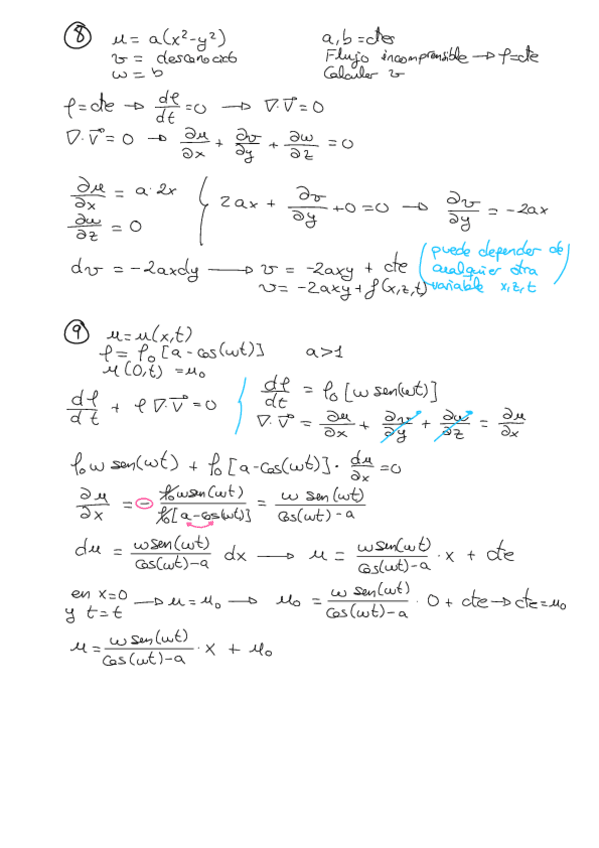 ⑧ u = a(x²-y²) a, b = ctes
v = desconocido Flujo incompresible → ρ=cte
w = b Calcular v
ρ = cte → dρ/dt = 0 → ∇·V⃗ = 0
∇·V⃗ = 0 → ∂u/∂x + ∂v/∂y + ∂w/∂z = 0
∂u/∂x = a·2x
∂w/∂z = 0 { 2ax + ∂v/∂y + 0 = 0 → ∂v/∂y = -2ax
dv = -2axdy → v = -2axy + cte (puede depender de cualquier otra variable x,z,t)
v = -2axy + f(x,z,t)
⑨ u = u(x,t)
ρ = ρ₀[a - cos(ωt)] a>1
u(0,t) = u₀
dρ/dt + ρ∇·V⃗ = 0 { dρ/dt = ρ₀[ω sen(ωt)]
∇·V⃗ = ∂u/∂x + ∂v/∂y + ∂w/∂z = ∂u/∂x
ρ₀ω sen(ωt) + ρ₀[a-cos(ωt)]· du/∂x = 0
∂u/∂x = - ρ₀ωsen(ωt)/ρ₀[a-cos(ωt)] = ω sen(ωt)/cos(ωt)-a
du = ωsen(ωt)/cos(ωt)-a dx → u = ωsen(ωt)/cos(ωt)-a · x + cte
en x=0
y t=t → u = u₀ → u₀ = ω sen(ωt)/cos(ωt)-a · 0 + cte → cte = u₀
u = ω sen(ωt)/cos(ωt)-a · x + u₀